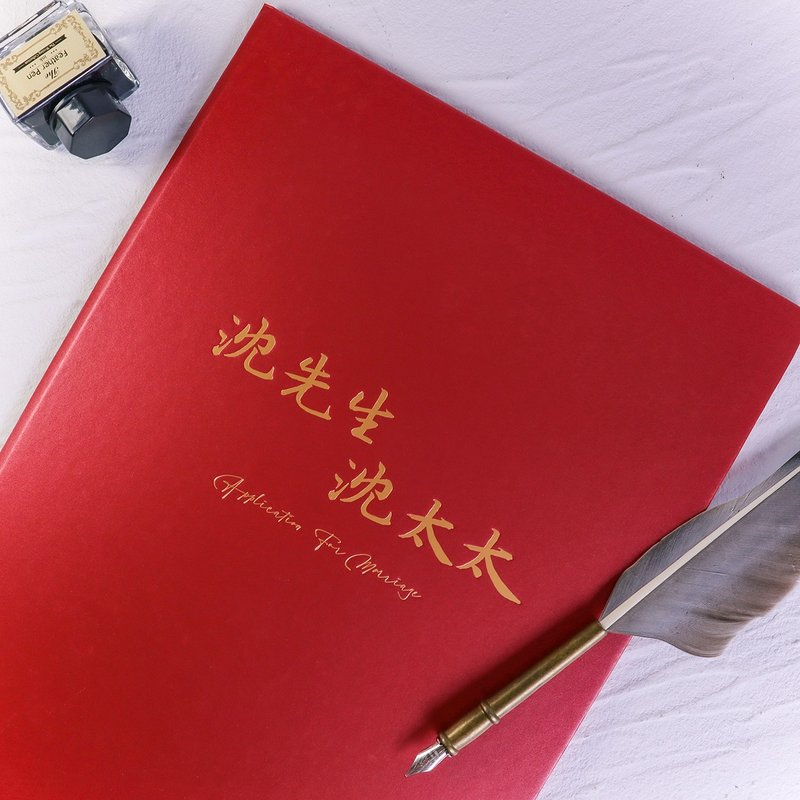 The
Feather Pen
沈先生
沈太太
Application For Marriage